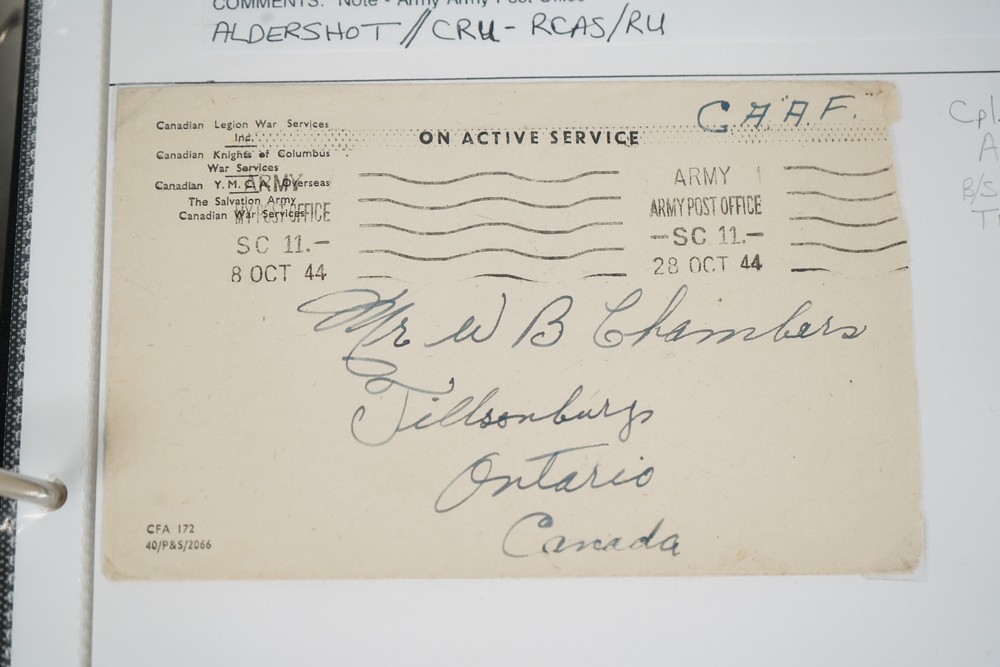 COMMENTS: Note - Army Army Post Office
ALDERSHOT // CRU - RCAS/RU
Cpl.
A
B/S
T
C.A.A.F.
Canadian Legion War Services
Inc.
Canadian Knights of Columbus
War Services
Canadian Y.M.C.A. Overseas
The Salvation Army
Canadian War Services
ON ACTIVE SERVICE
ARMY
MY POST OFFICE
SC 11.-
8 OCT 44
ARMY
ARMY POST OFFICE
-SC 11.-
28 OCT 44
Mr W B Chambers
Tillsonburg
Ontario
Canada
CFA 172
40/P&S/2066